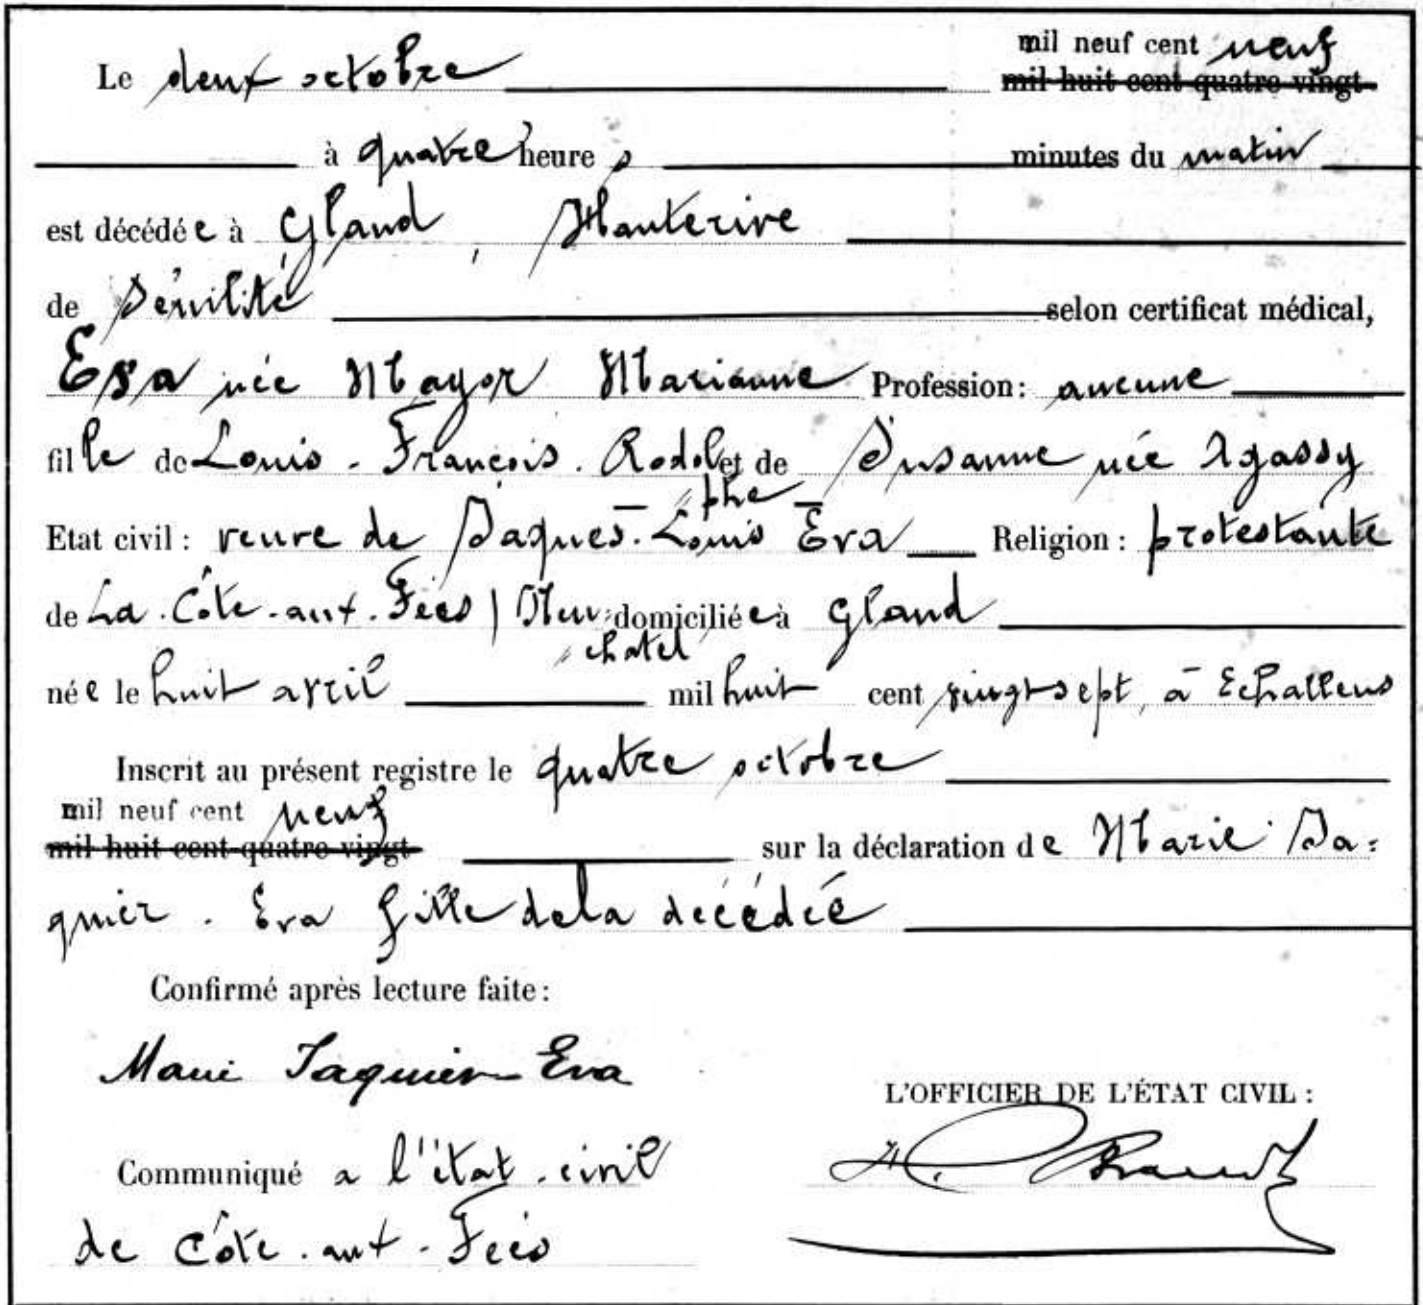 mil neuf cent neuf
Le deux octobre mil huit cent quatre-vingt
à quatre heures minutes du matin
est décédée à Gland, Hauterive
de Sénilité selon certificat médical,
Eva née Mayor Marianne Profession: aucune
fille de Louis-François-Rodol et de Susanne née Agassy
"phe
Etat civil: veuve de Jaques-Louis Eva Religion: protestante
de La Côte-aux-Fées | Neu- domiciliée à Gland
"chatel
née le huit avril mil huit cent vingt sept, à Echallens
Inscrit au présent registre le quatre octobre
mil neuf cent neuf
mil huit cent quatre-vingt sur la déclaration de Marie Ja=
quier-Eva fille de la décédée
Confirmé après lecture faite:
Marie Jaquier-Eva
L'OFFICIER DE L'ÉTAT CIVIL:
Communiqué a l'état-civil
de Côte-aux-Fées